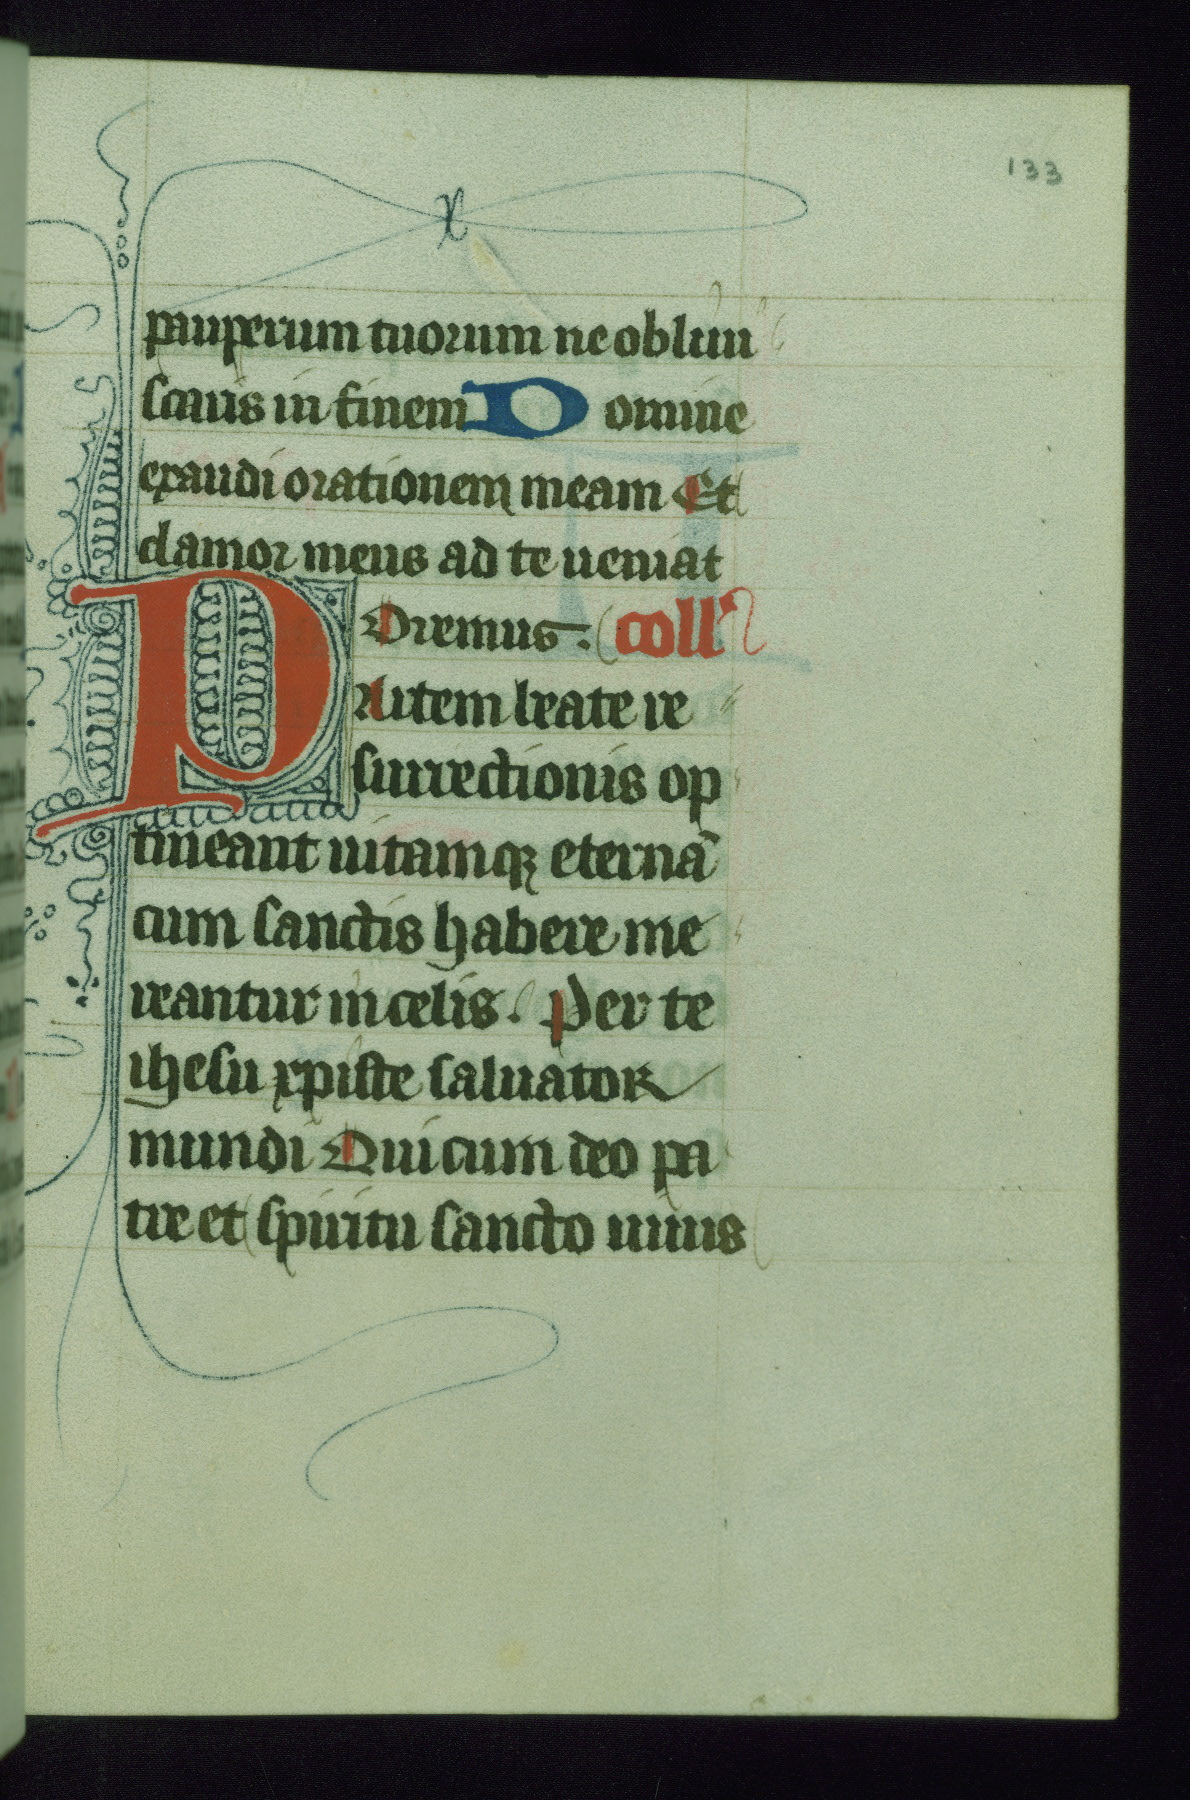 133
pauperum tuorum ne obliui
scaris in finem Domine
exaudi orationem meam Et
clamor meus ad te ueniat
Oremus. coll
PArtem beate re
surrectionis op
tineant uitamqꝫ eternā
cum sanctis habere me
reantur in celis. Per te
ihesu xpiste saluator
mundi Qui cum deo pa
tre et spiritu sancto uiuis